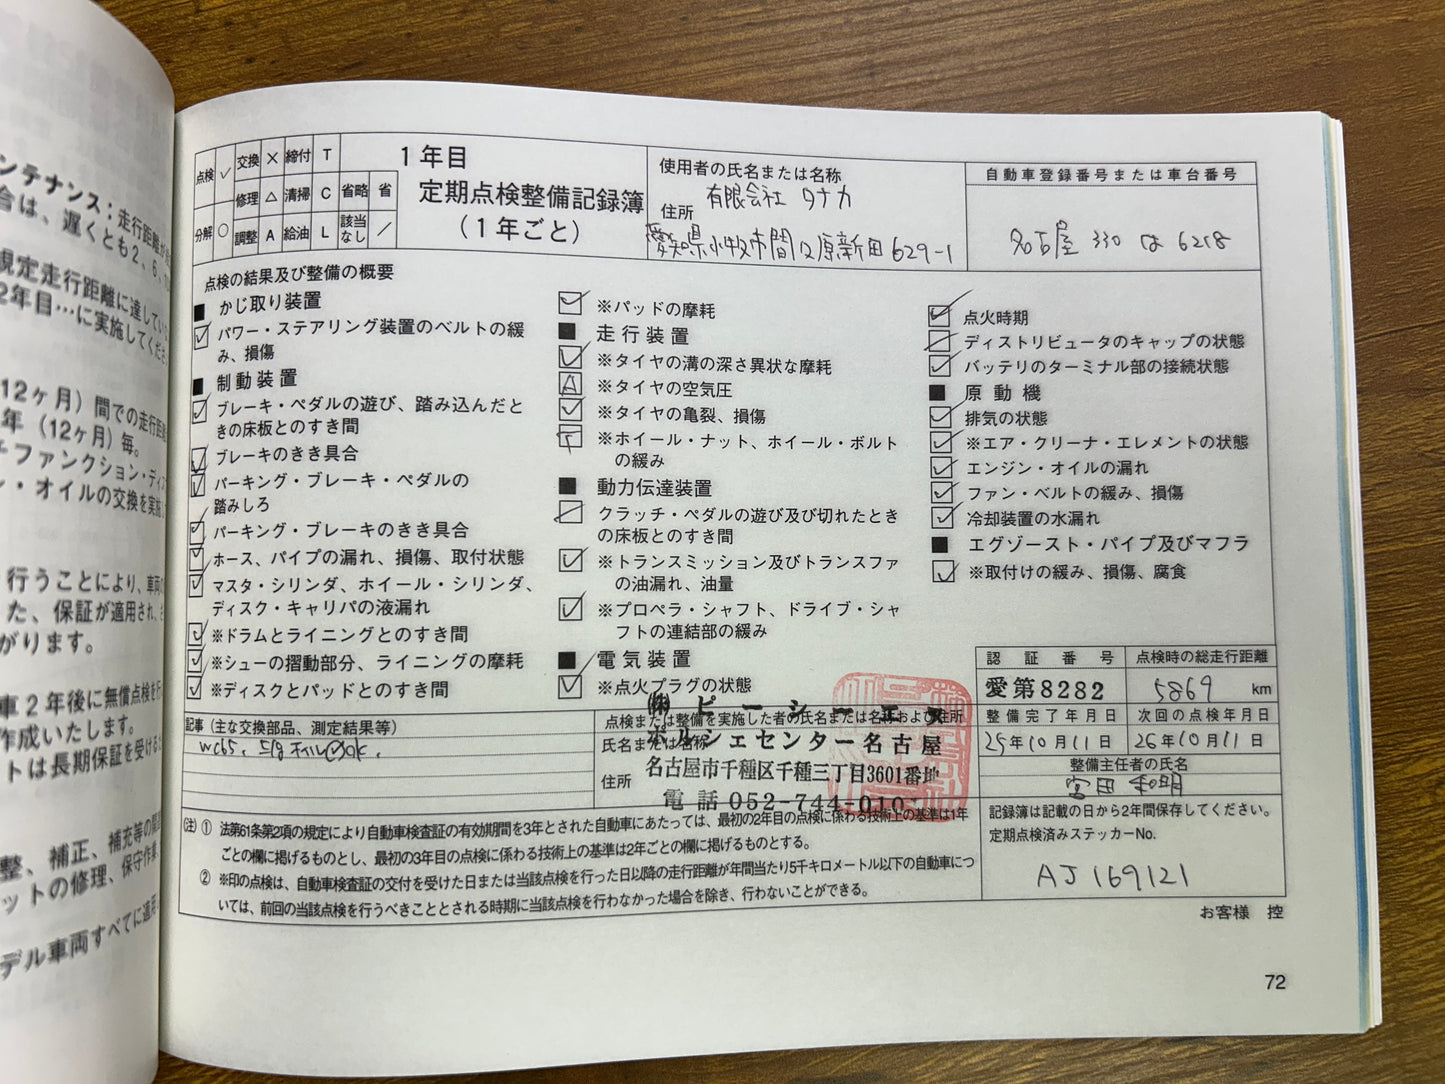 ンテナンス：走行距離が
合は、遅くとも2、6、
規定走行距離に達してい
2年目…に実施してくだ
12ヶ月）間での走行距
年（12ヶ月）毎。
チファンクション・ディ
ン・オイルの交換を実施
行うことにより、車両の
た、保証が適用され、
がります。
車2年後に無償点検を行
作成いたします。
トは長期保証を受ける
整、補正、補充等の
ットの修理、保守作業
デル車両すべてに適用
点検 ✓ 交換 × 締付 T
修理 △ 清掃 C 省略 省
分解 ○ 調整 A 給油 L 該当なし ／
1年目
定期点検整備記録簿
（1年ごと）
使用者の氏名または名称
有限会社 タナカ
住所
愛知県小牧市間々原新田629-1
自動車登録番号または車台番号
名古屋 330 は 6218
点検の結果及び整備の概要
■ かじ取り装置
パワー・ステアリング装置のベルトの緩
み、損傷
■ 制動装置
ブレーキ・ペダルの遊び、踏み込んだと
きの床板とのすき間
ブレーキのきき具合
パーキング・ブレーキ・ペダルの
踏みしろ
パーキング・ブレーキのきき具合
ホース、パイプの漏れ、損傷、取付状態
マスタ・シリンダ、ホイール・シリンダ、
ディスク・キャリパの液漏れ
※ドラムとライニングとのすき間
※シューの摺動部分、ライニングの摩耗
※ディスクとパッドとのすき間
※パッドの摩耗
■ 走行装置
※タイヤの溝の深さ異状な摩耗
A ※タイヤの空気圧
※タイヤの亀裂、損傷
T ※ホイール・ナット、ホイール・ボルト
の緩み
■ 動力伝達装置
クラッチ・ペダルの遊び及び切れたとき
の床板とのすき間
※トランスミッション及びトランスファ
の油漏れ、油量
※プロペラ・シャフト、ドライブ・シャ
フトの連結部の緩み
■ 電気装置
※点火プラグの状態
点火時期
ディストリビュータのキャップの状態
バッテリのターミナル部の接続状態
■ 原動機
排気の状態
※エア・クリーナ・エレメントの状態
エンジン・オイルの漏れ
ファン・ベルトの緩み、損傷
冷却装置の水漏れ
■ エグゾースト・パイプ及びマフラ
※取付けの緩み、損傷、腐食
記事（主な交換部品、測定結果等）
点検または整備を実施した者の氏名または名称および住所
氏名または名称
住所
㈱ピーシーエス
ポルシェセンター名古屋
名古屋市千種区千種三丁目3601番地
電話 052-744-010
認証番号
愛第8282
点検時の総走行距離
5869 km
整備完了年月日
25年10月11日
次回の点検年月日
26年10月11日
整備主任者の氏名
宮田 和明
記録簿は記載の日から2年間保存してください。
定期点検済みステッカーNo.
AJ169121
(注) ① 法第61条第2項の規定により自動車検査証の有効期間を3年とされた自動車にあたっては、最初の2年目の点検に係わる技術上の基準は1年
ごとの欄に掲げるものとし、最初の3年目の点検に係わる技術上の基準は2年ごとの欄に掲げるものとする。
② ※印の点検は、自動車検査証の交付を受けた日または当該点検を行った日以降の走行距離が年間当たり5千キロメートル以下の自動車につ
いては、前回の当該点検を行うべきこととされる時期に当該点検を行わなかった場合を除き、行わないことができる。
お客様 控
72